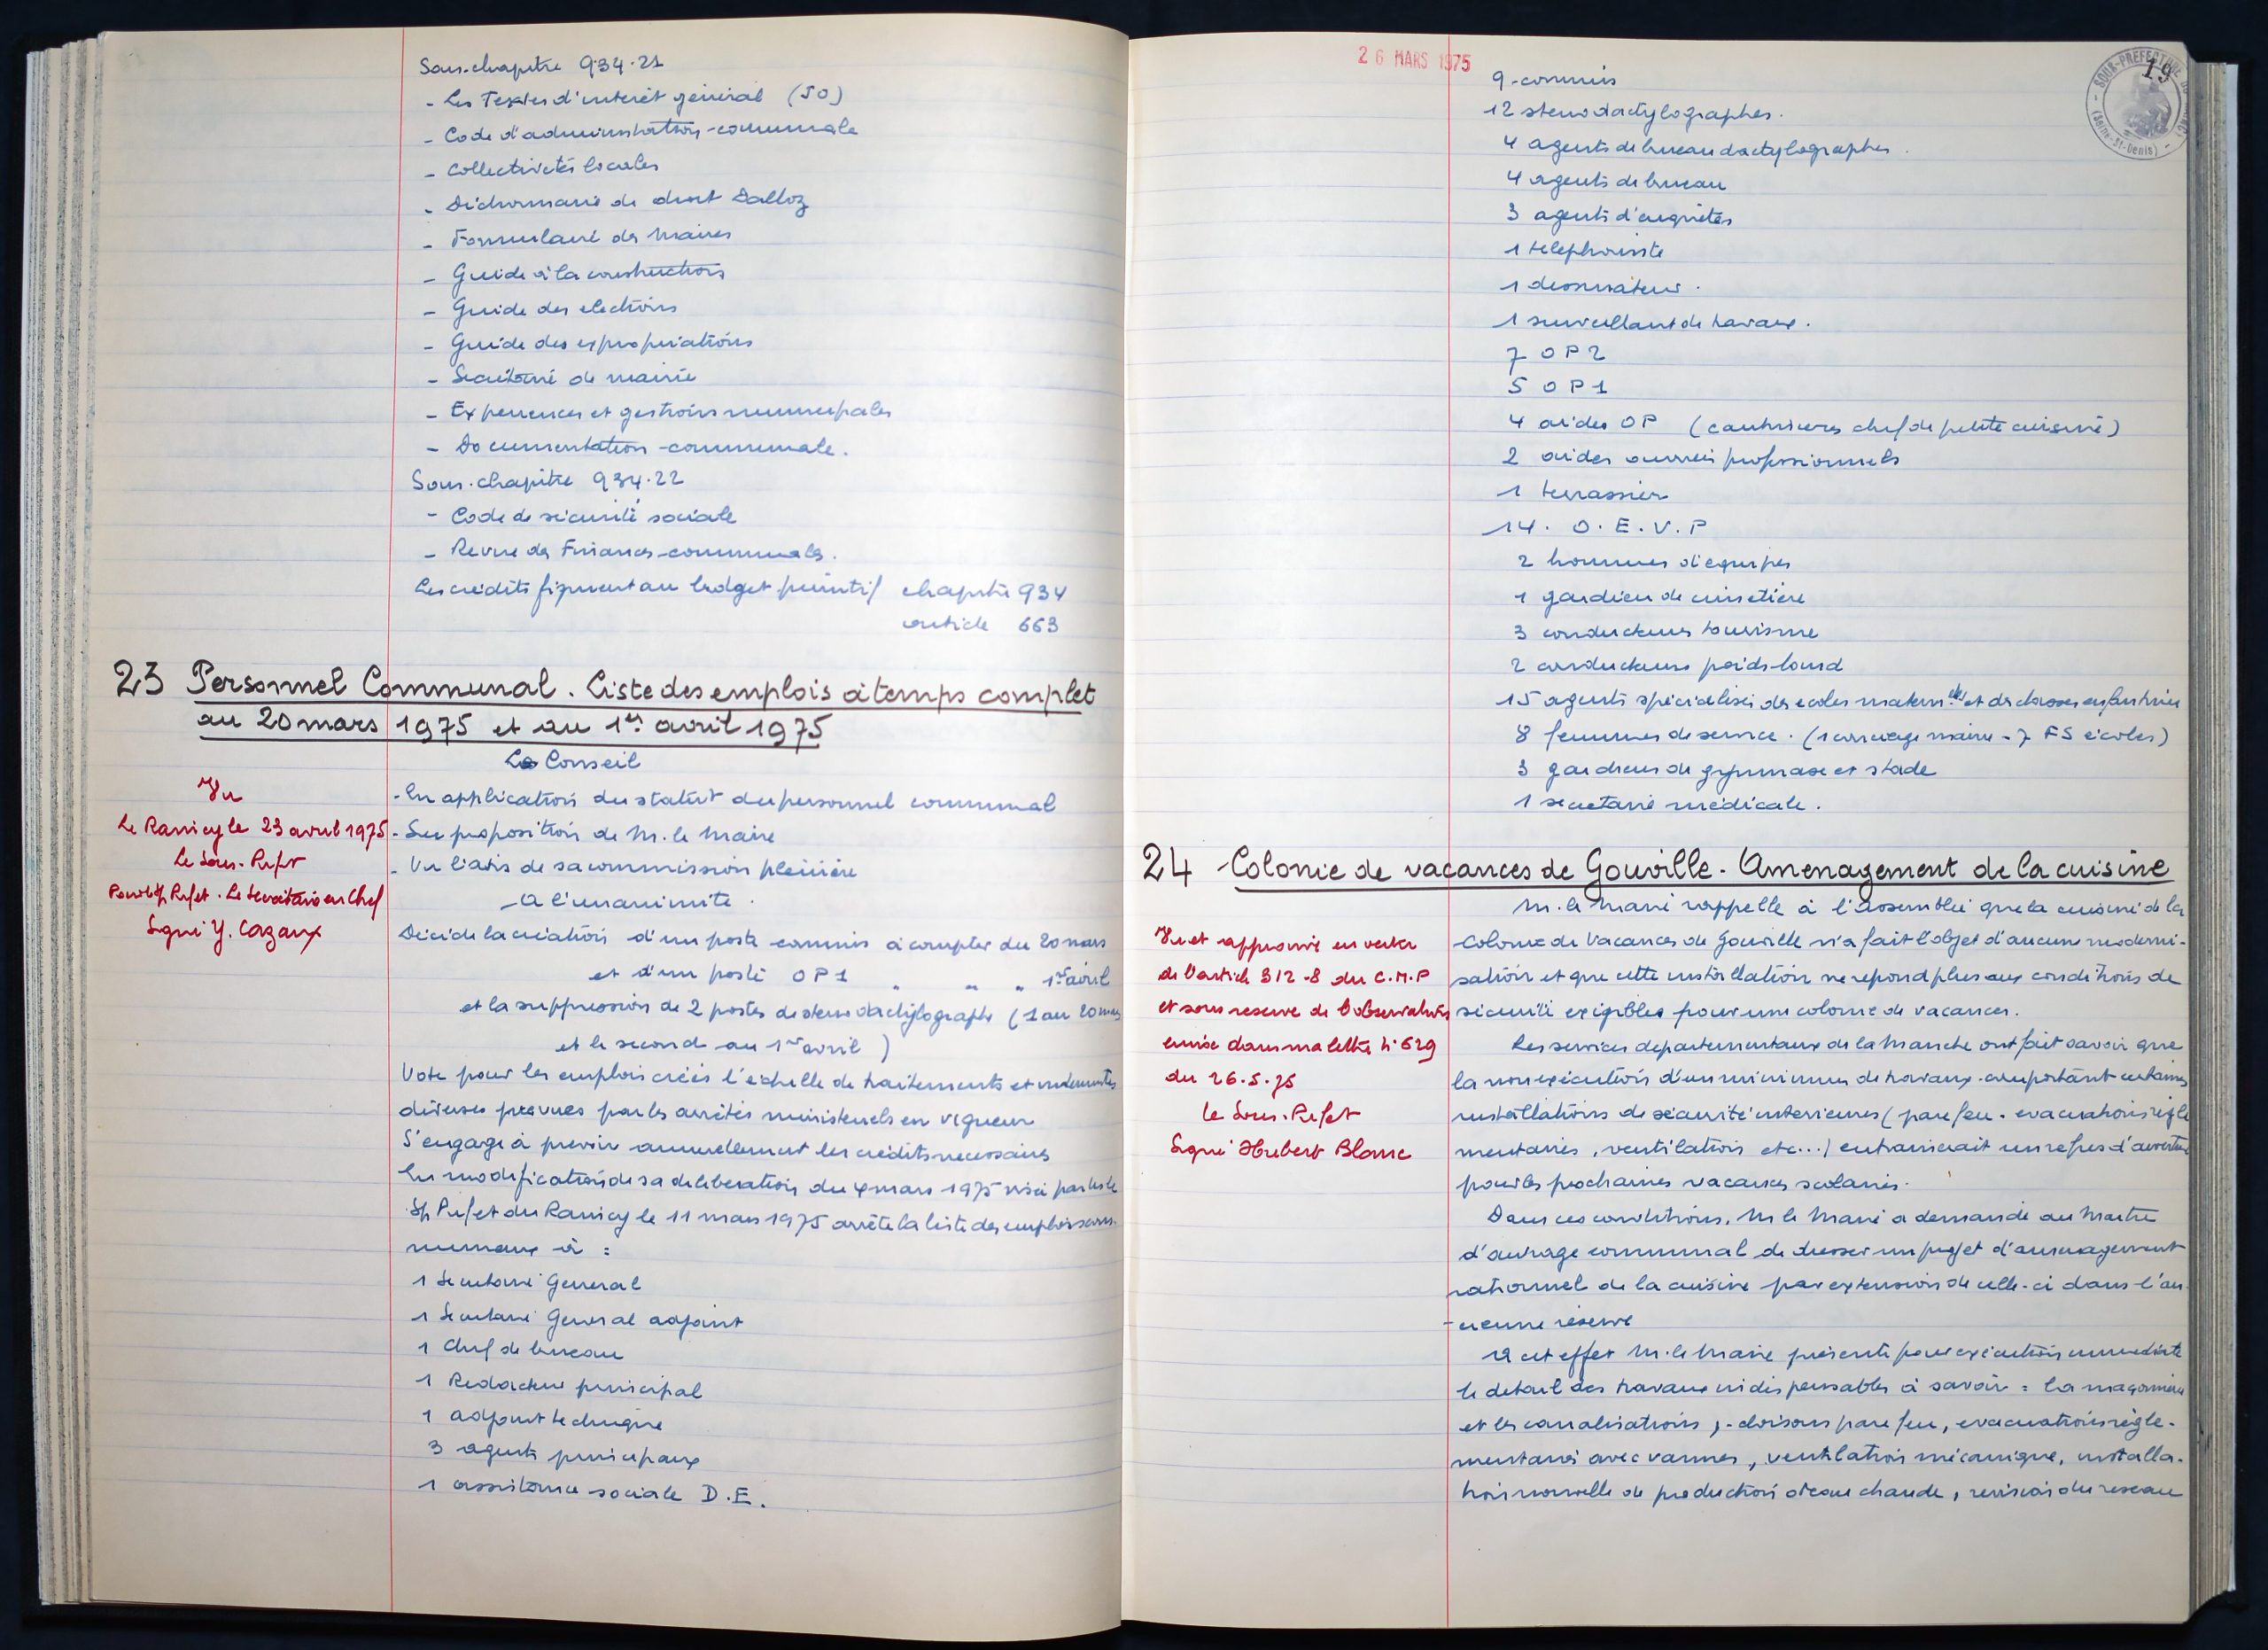 Sous-chapitre 934.21
- Les Textes d'interêt général (JO)
- Code d'administration communale
- Collectivités locales
- Dictionnaire de droit Dalloz
- Formulaire des Maires
- Guide à la construction
- Guide des elections
- Guide des expropriations
- Secrétaire de mairie
- Experiences et gestions municipales
- Documentation communale.
Sous-chapitre 934.22
- Code de sécurité sociale
- Revue des Finances communales.
Les crédits figurent au budget primitif chapitre 934
article 663
23 Personnel Communal. Liste des emplois à temps complet
au 20 mars 1975 et au 1er avril 1975
Le Conseil
Vu
Le Raincy le 23 avril 1975
Le Sous-Prefet
Pour le S/Prefet. Le Secrétaire en Chef
Signé Y. Cazaux
- En application du statut du personnel communal
- Sur proposition de M. le Maire
- Vu l'avis de sa commission plénière
- A l'unanimite.
Décide la création d'un poste commis à compter du 20 mars
et d'un poste OP1 " " " 1er avril
et la suppression de 2 postes de stenodactylographe (1 au 20 mars
et le second au 1er avril)
Vote pour les emplois créés l'échelle de traitements et indemnités
diverses prévues par les arrêtés ministeriels en vigueur
S'engage à prévoir annuellement les crédits necessaires
En modification de sa deliberation du 4 mars 1975 visée par le
S/ Prefet du Raincy le 11 mars 1975 arrête la liste des emplois com-
munaux à :
1 Secretaire General
1 Secretaire General adjoint
1 Chef de bureau
1 Redacteur principal
1 adjoint technique
3 agents principaux
1 assistance sociale D.E.
26 MARS 1975
19
SOUS-PREFECTURE
(Seine-St-Denis)
9 commis
12 stenodactylographes.
4 agents de bureau dactylographes.
4 agents de bureau
3 agents d'enquêtes
1 telephoniste
1 dessinateur.
1 surveillant de travaux.
7 OP2
5 OP1
4 aides OP (cantinieres chef de petite cuisine)
2 aides ouvriers professionnels
1 terrassier
14. O.E.V.P
2 hommes d'equipes
1 gardien de cimetière
3 conducteurs tourisme
2 conducteurs poids-lourd
15 agents spécialisés des ecoles matern.les et des classes enfantines
8 femmes de service. (1 concierge mairie - 7 FS écoles)
3 gardiens de gymnase et stade
1 secretaire médicale.
24 Colonie de vacances de Gouville. Amenagement de la cuisine
Vu et approuvé en vertu
de l'article 312-8 du C.M.P
et sous reserve de l'observation
émise dans ma lettre N° 629
du 26.5.75
le Sous-Prefet
Signé Hubert Blanc
M. le Maire rappelle à l'Assemblée que la cuisine de la
Colonie de Vacances de Gouville n'a fait l'objet d'aucune moderni-
sation et que cette installation ne repond plus aux conditions de
sécurité exigibles pour une colonie de vacances.
Les services departementaux de la Manche ont fait savoir que
la non exécution d'un minimum de travaux comportant certaines
installations de sécurité interieures (pare feu - evacuations régle
mentaires, ventilation etc...) entrainerait un refus d'ouverture
pour les prochaines vacances scolaires.
Dans ces conditions, M le Maire a demandé au Maitre
d'ouvrage communal de dresser un projet d'amenagement
rationnel de la cuisine par extension de celle-ci dans l'an-
-cienne réserve
A cet effet M. le Maire présente pour exécution immediate
le detail des travaux indispensables à savoir : la maçonnerie
et les canalisations, cloisons pare feu, evacuations régle-
mentaires avec vannes, ventilation mécanique, installa-
tion nouvelle de production d'eau chaude, revision du reseau